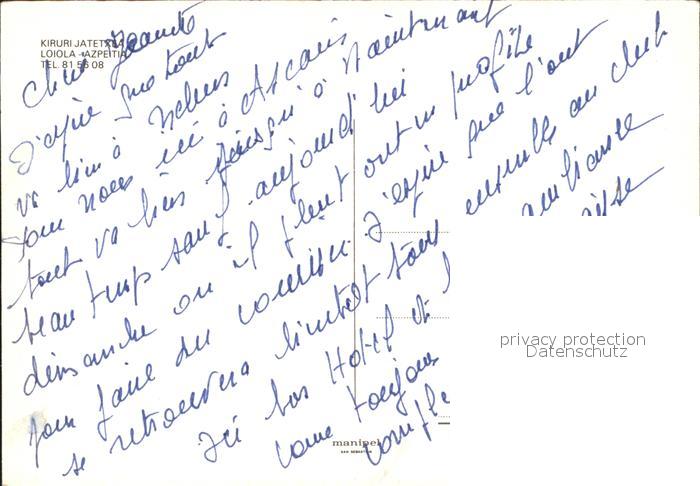 KIRURI JATETXEA
LOIOLA - AZPEITIA
TEL. 81 56 08
J'espère que tout
va bien à
pour nous ici à Ascain
tout va bien jusqu'à maintenant
beau temps sauf aujourd'hui
dimanche ou il pleut ont en profite
pour faire du J'espère que l'ont
se retrouvera bientôt tous ensemble au club
Ici bon Hotel et
comme toujours
manipel
SAN SEBASTIAN
privacy protection
Datenschutz